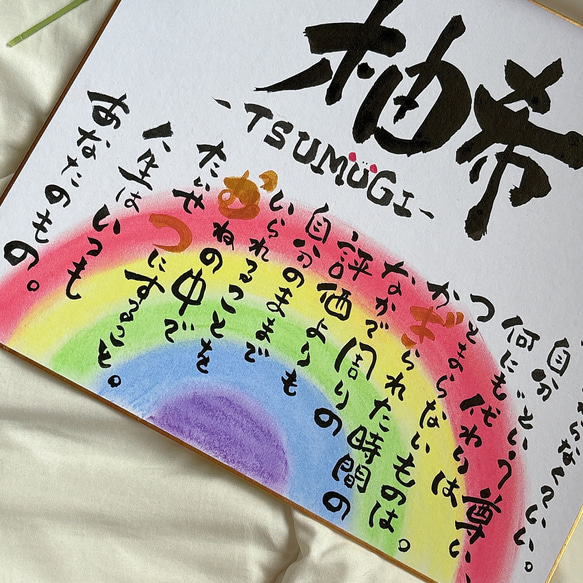 柚希
-TSUMUGI-
らなくていい。
自分という尊い
何にも代わりは
つとまらないものは。
かぎられた時間の
なかで周りの
評価よりも
自分のままで
いられることを
むねの中で
たいせつにすること。
人生はいつも
あなたのもの。